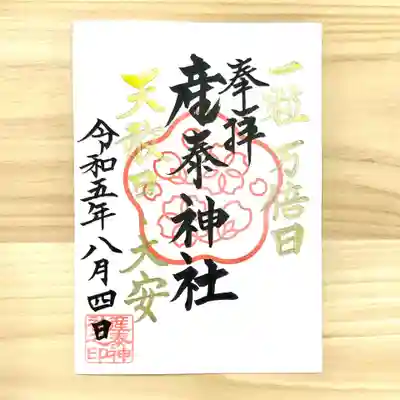 一粒万倍日
奉拝
産泰神社
天赦日 大安
令和五年八月四日
産泰神
社之印